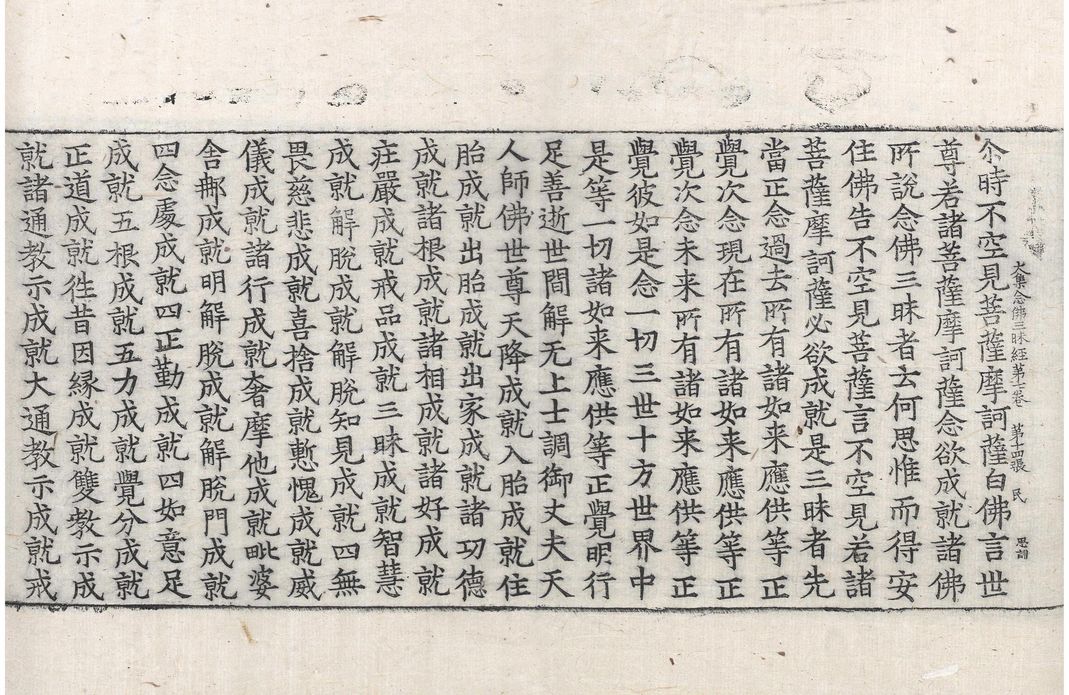 大集念佛三昧経第卷 第十四張 民 思訓
尒時不空見菩薩摩訶薩白佛言世
尊若諸菩薩摩訶薩念欲成就諸佛
所說念佛三昧者去何思惟而得安
住佛告不空見菩薩言不空見若諸
菩薩摩訶薩必欲成就是三昧者先
當正念過去所有諸如来應供等正
覺次念現在所有諸如来應供等正
覺次念未来所有諸如来應供等正
覺彼如是念一切三世十方世界中
是等一切諸如来應供等正覺明行
足善逝世間解无上士調御丈夫天
人師佛世尊天降成就入胎成就住
胎成就出胎成就出家成就諸功德
成就諸根成就諸相成就諸好成就
庄嚴成就戒品成就三昧成就智慧
成就解脫成就解脫知見成就四無
畏慈悲成就喜捨成就慙愧成就威
儀成就諸行成就奢摩他成就毗婆
舍那成就明解脫成就解脫門成就
四念處成就四正勤成就四如意足
成就五根成就五力成就覺分成就
正道成就徃昔因縁成就雙教示成
就諸通教示成就大通教示成就戒